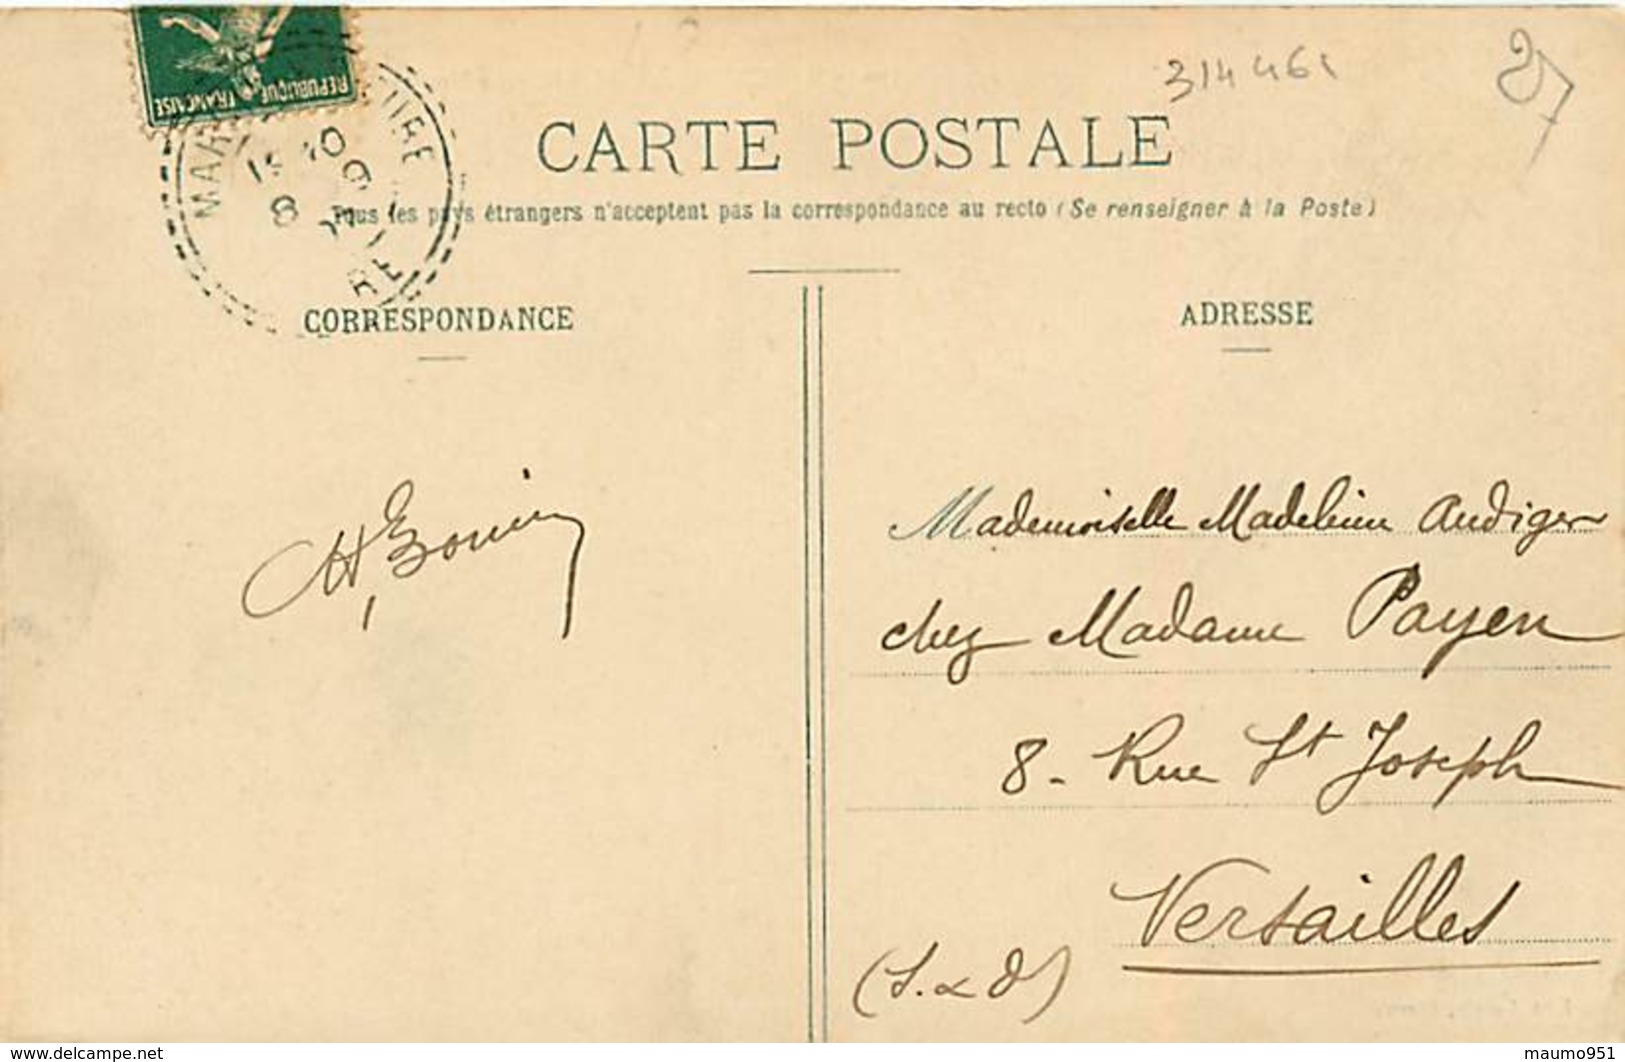 REPUBLIQUE FRANÇAISE
314461
27
CARTE POSTALE
Tous les pays étrangers n'acceptent pas la correspondance au recto (Se renseigner à la Poste)
CORRESPONDANCE
ADRESSE
Mademoiselle Madeleine Audiger
chez Madame Payen
8 - Rue St Joseph
Versailles
(S. & O)
www.delcampe.net
maumo951